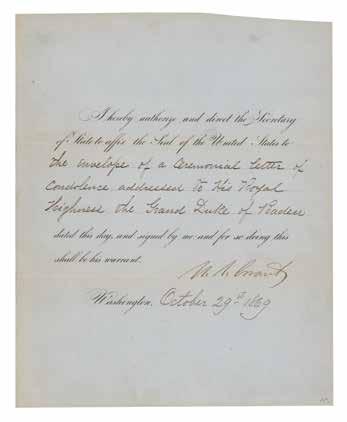 I hereby authorize and direct the Secretary
of State to affix the Seal of the United States to
the envelope of a Ceremonial Letter of
Condolence addressed to His Royal
Highness the Grand Duke of Baden
dated this day, and signed by me and for so doing this
shall be his warrant.
U. S. Grant
Washington, October 29th 1869